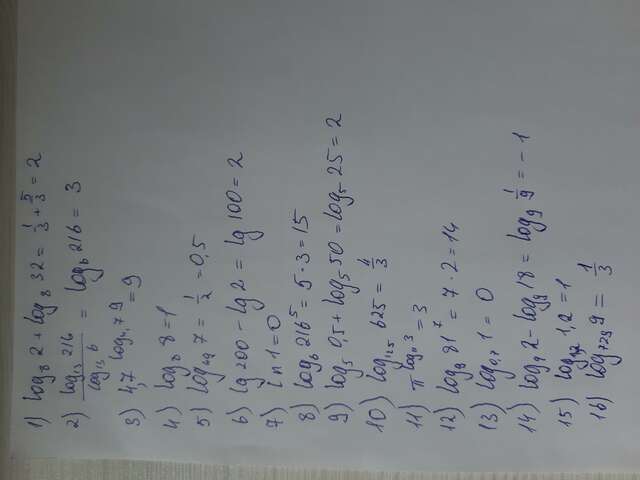 1) log₈ 2 + log₈ 32 = 1/3 + 5/3 = 2
2) log₁₃ 216 / log₁₃ 6 = log₆ 216 = 3
3) 4,7 ^ log₄,₇ 9 = 9
4) log₈ 8 = 1
5) log₄₉ 7 = 1/2 = 0,5
6) lg 200 - lg 2 = lg 100 = 2
7) ln 1 = 0
8) log₆ 216⁵ = 5 · 3 = 15
9) log₅ 0,5 + log₅ 50 = log₅ 25 = 2
10) log₁₂₅ 625 = 4/3
11) π ^ log 3 = 3
12) log₉ 81⁷ = 7 · 2 = 14
13) 1 = 0
14) log₉ 2 - log₉ 18 = log₉ 1/9 = -1
15) log₁,₂ 1,2 = 1
16) log₇₂₉ 9 = 1/3